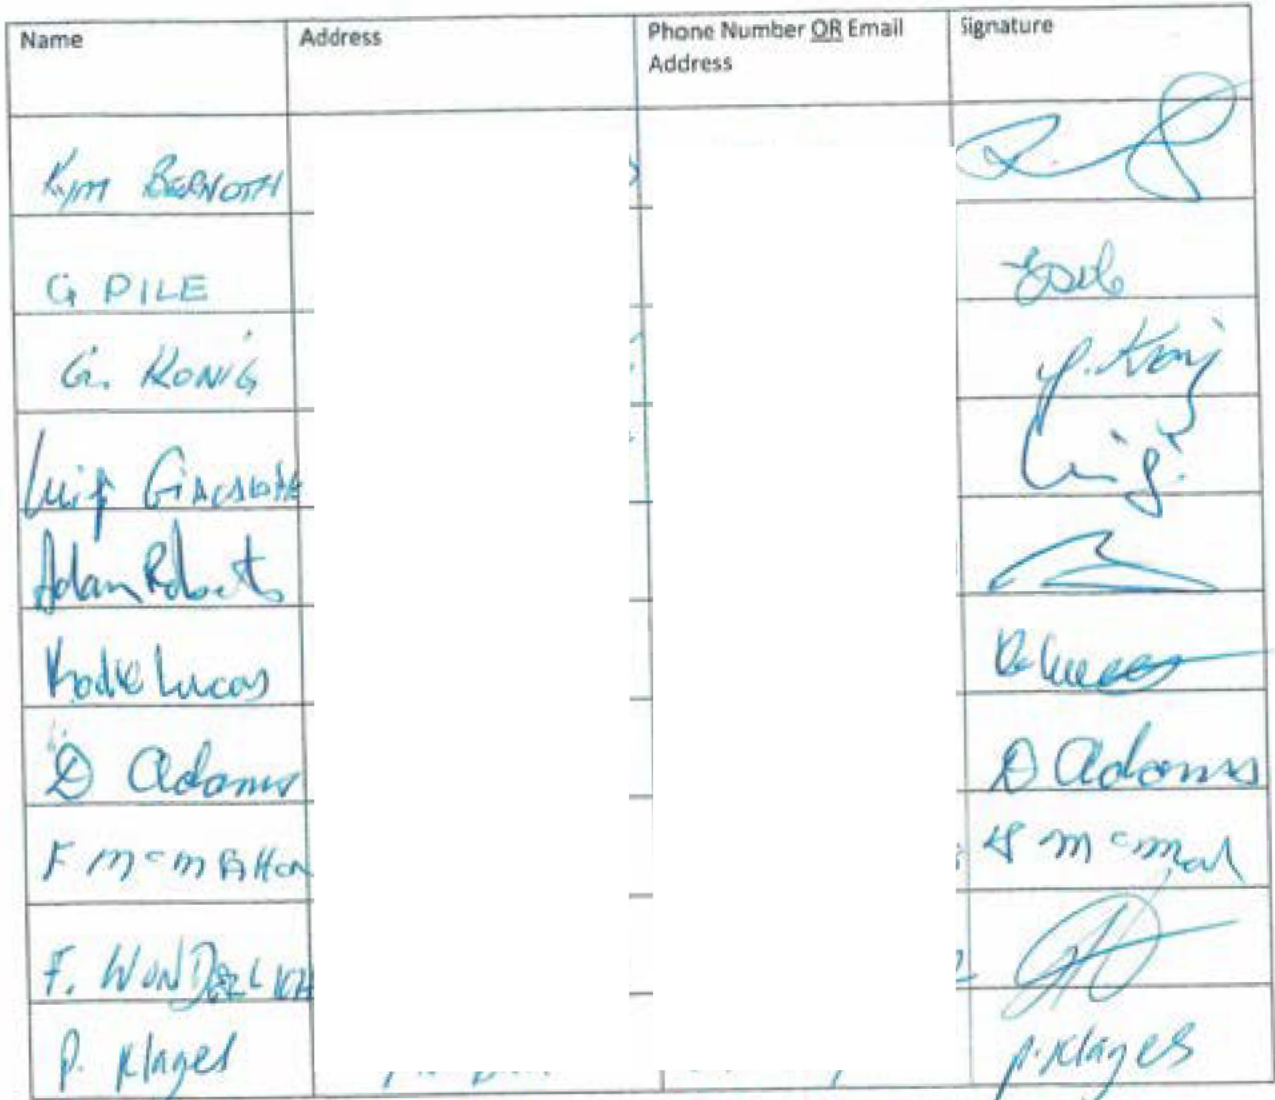 Name Address Phone Number OR Email Signature
Address
Kym BERNOTH
G PILE
G Pile
G. KONIG
g. Konig
Luigi
Luigi
Adam Roberts
Kodie Lucas
Lucas
D Adams D Adams
F McMAHon
F McMah
F. WUNDERLICH
P. Klages p. Klages